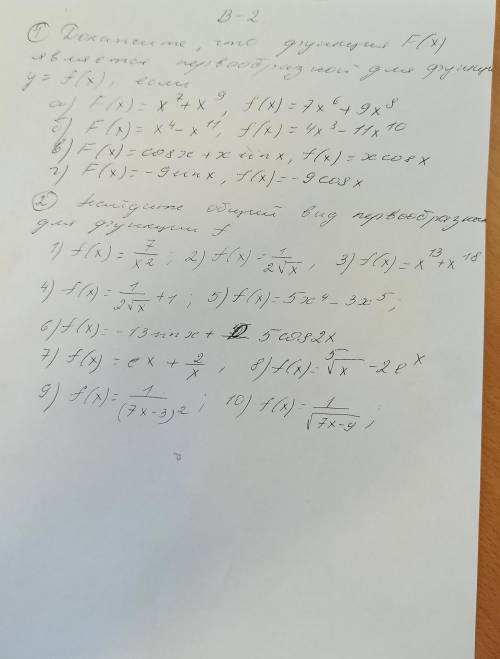 В-2
① Докажите, что функция F(x)
является первообразной для функции
y = f(x), если
а) F(x) = x⁷ + x⁹, f(x) = 7x⁶ + 9x⁸
б) F(x) = x⁴ - x¹¹, f(x) = 4x³ - 11x¹⁰
в) F(x) = cosx + x sinx, f(x) = x cosx
г) F(x) = -9 sinx, f(x) = -9 cosx
② Найдите общий вид первообразных
для функции f
1) f(x) = 7/x² ; 2) f(x) = 1/(2√x), 3) f(x) = x¹³ + x¹⁸
4) f(x) = 1/(2√x) + 1 ; 5) f(x) = 5x⁴ - 3x⁵ ;
6) f(x) = -13 sinx + 5 cos2x
7) f(x) = eˣ + 2/x ; 8) f(x) = ⁵√x - 2eˣ
9) f(x) = 1/(7x-3)² ; 10) f(x) = 1/√(7x-9) ;